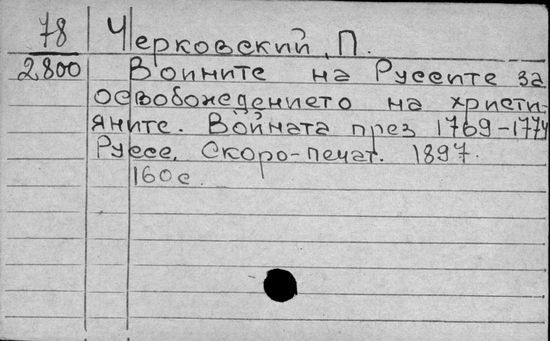 78 Черковский, П.
2800 Воините на Русите за
освобождението на христи-
яните. Войната през 1769-1774
Русе, Скоро-печат. 1897.
160 с.